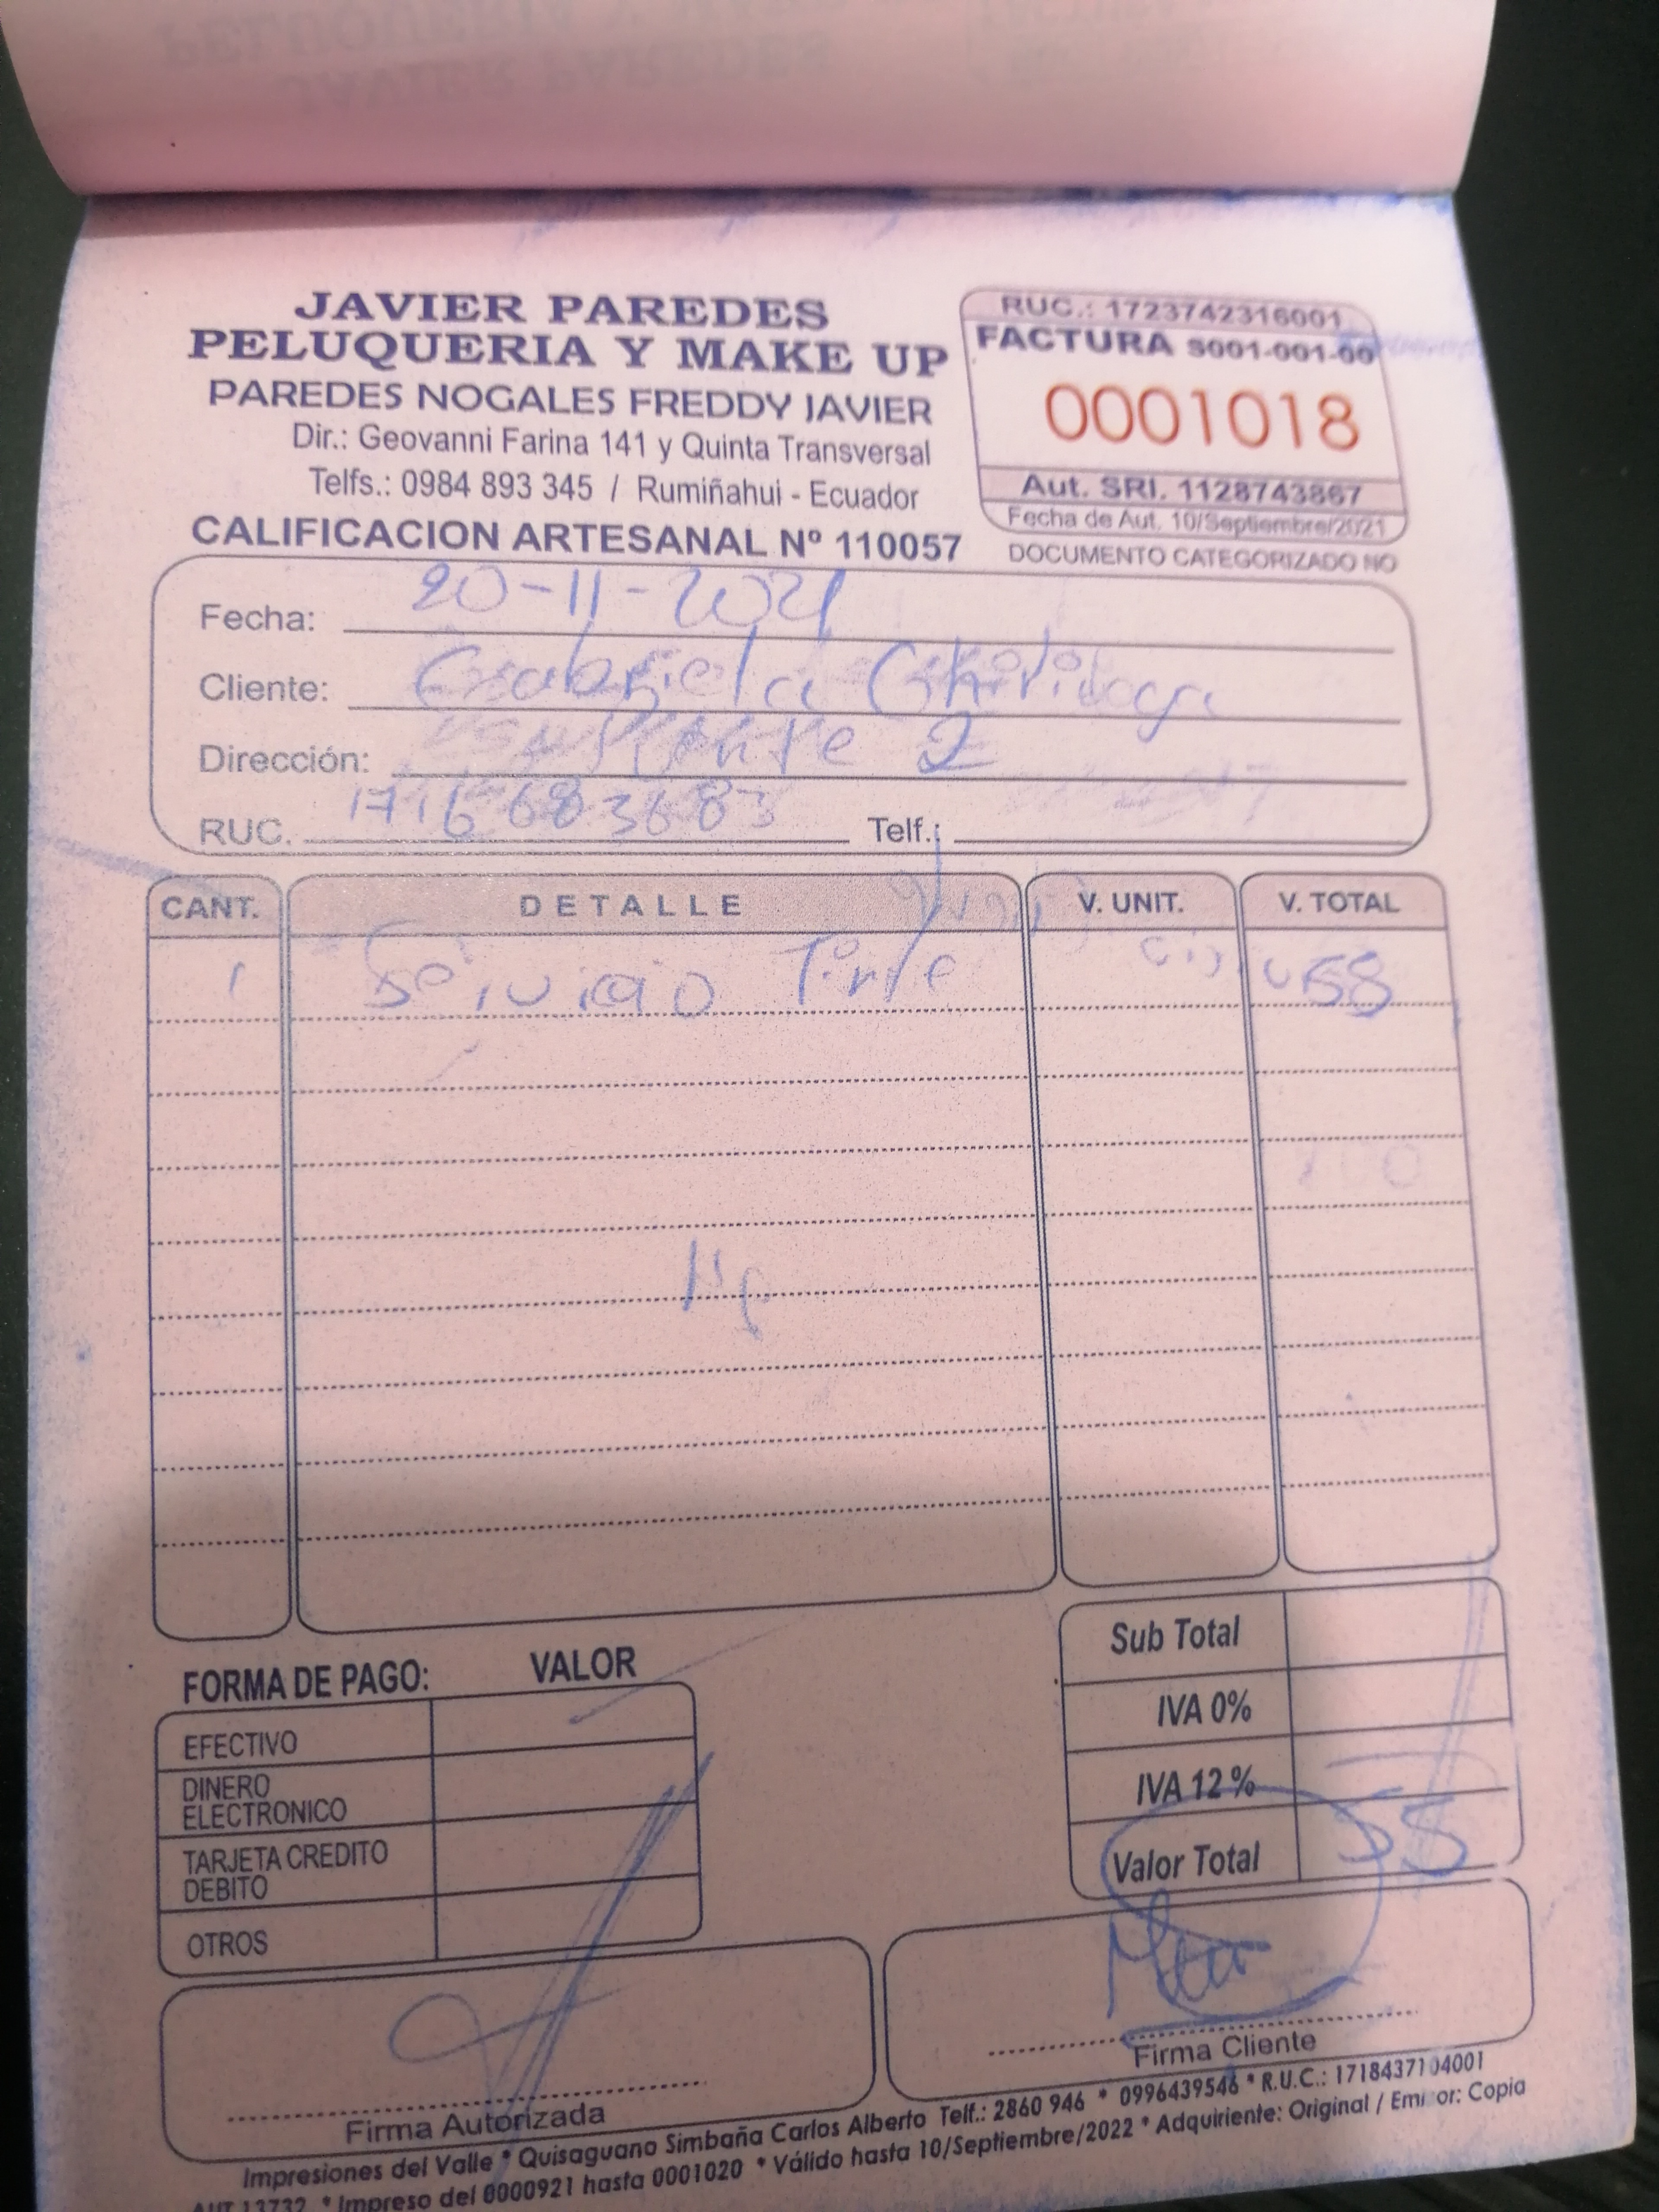 JAVIER PAREDES
PELUQUERIA Y MAKE UP
PAREDES NOGALES FREDDY JAVIER
Dir.: Geovanni Farina 141 y Quinta Transversal
Telfs.: 0984 893 345 / Rumiñahui - Ecuador
CALIFICACION ARTESANAL Nº 110057
RUC.: 1723742316001
FACTURA S001-001-00
0001018
Aut. SRI. 1128743867
Fecha de Aut. 10/Septiembre/2021
DOCUMENTO CATEGORIZADO NO
Fecha: 20-11-2021
Cliente: Gabriela
Dirección: Puente 2
RUC. 1716683683 Telf.:
CANT. DETALLE V. UNIT. V. TOTAL
1 Servicio Tinte 58
Sub Total
IVA 0%
IVA 12%
Valor Total
FORMA DE PAGO: VALOR
EFECTIVO
DINERO
ELECTRONICO
TARJETA CREDITO
DEBITO
OTROS
Firma Autorizada
Firma Cliente
Impresiones del Valle * Quisaguano Simbaña Carlos Alberto Telf.: 2860 946 * 0996439546 * R.U.C.: 1718437104001
AUT 13732 * Impreso del 0000921 hasta 0001020 * Válido hasta 10/Septiembre/2022 * Adquiriente: Original / Emisor: Copia